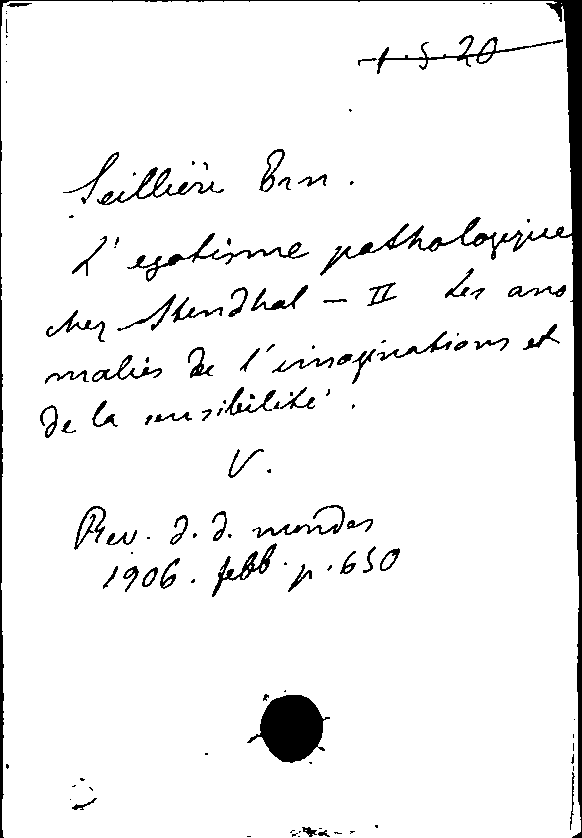 1.5.20
Seillière Ern.
L'egotisme pathologique
chez Stendhal - II Les ano
malies de l'imaginations et
de la sensibilité.
V.
Rev. d. d. mondes
1906. febb. p. 650